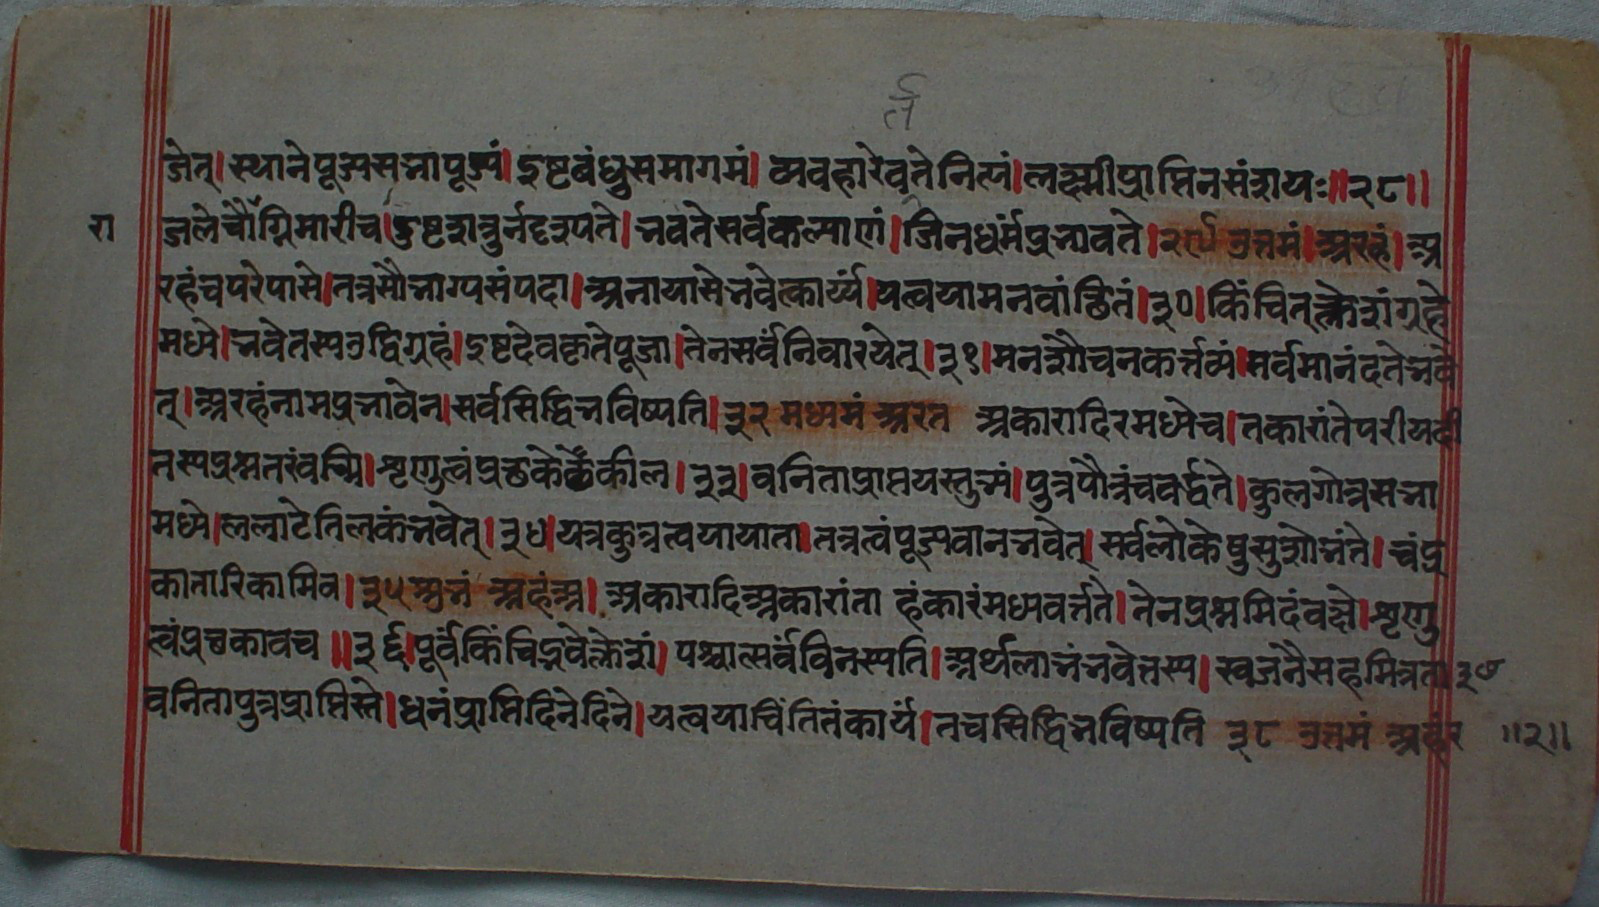 र्त
जेत्। स्थाने पूज्य सभापूज्यं। इष्टबंधुसमागमं। व्यवहारे वृतेनित्यं। लक्ष्मीप्राप्तिनसंशयः॥२८॥
रा जलेचौग्निमारीच। दुष्टशत्रुर्नदृश्यते। भवतेसर्वकल्याणं। जिनधर्मप्रभावते। २९ उत्तमं। अरहं। अ
रहंचपरेपासे। तत्रसौभाग्यसंपदा। अनायासेभवेत्कार्य्यं। यत्वयामनवांछितं। ३०। किंचित्क्लेशंग्रहे
मध्ये। भवेतस्यउद्विग्रहं। इष्टदेवकृतेपूजा। तेनसर्वंनिवारयेत्। ३१। मनशौचनकर्त्तव्यं। सर्वमानंदतेभवे
त्। अरहंनामप्रभावेन। सर्वसिद्धिभविष्यति। ३२ मध्यमं अरत अकारादिरमध्येच। तकारांतेपरीयदी
तस्यप्रश्नतरंवच्मि। शृणुत्वंप्रछकेकील। ३३। वनिताप्राप्तयस्तुभ्यं। पुत्रपौत्रंचवर्द्धते। कुलगोत्रसभा
मध्ये। ललाटेतिलकंभवेत्। ३४। यत्रकुत्रत्वयायाता। तत्रत्वंपूज्यवानभवेत्। सर्वलोकेषुसुशोभंते। चंद्र
कातारिकामिव। ३५ अुभं अहंअ। अकारादिअकारांता हंकारंमध्यवर्त्तते। तेनप्रश्नमिदंवक्षे। शृणु
त्वंप्रछकावच॥३६। पूर्वंकिंचिद्भवेत्क्लेशं। पश्चात्सर्वंविनस्यति। अर्थलाभंभवेत्तस्य। स्वजनैसहमित्रता ३७
वनितापुत्रप्राप्तिस्ते। धनंप्राप्तिदिनेदिने। यत्वयाचिंतितंकार्यं। तचसिद्धिभविष्यति ३८ उत्तमं अहंर ॥२॥